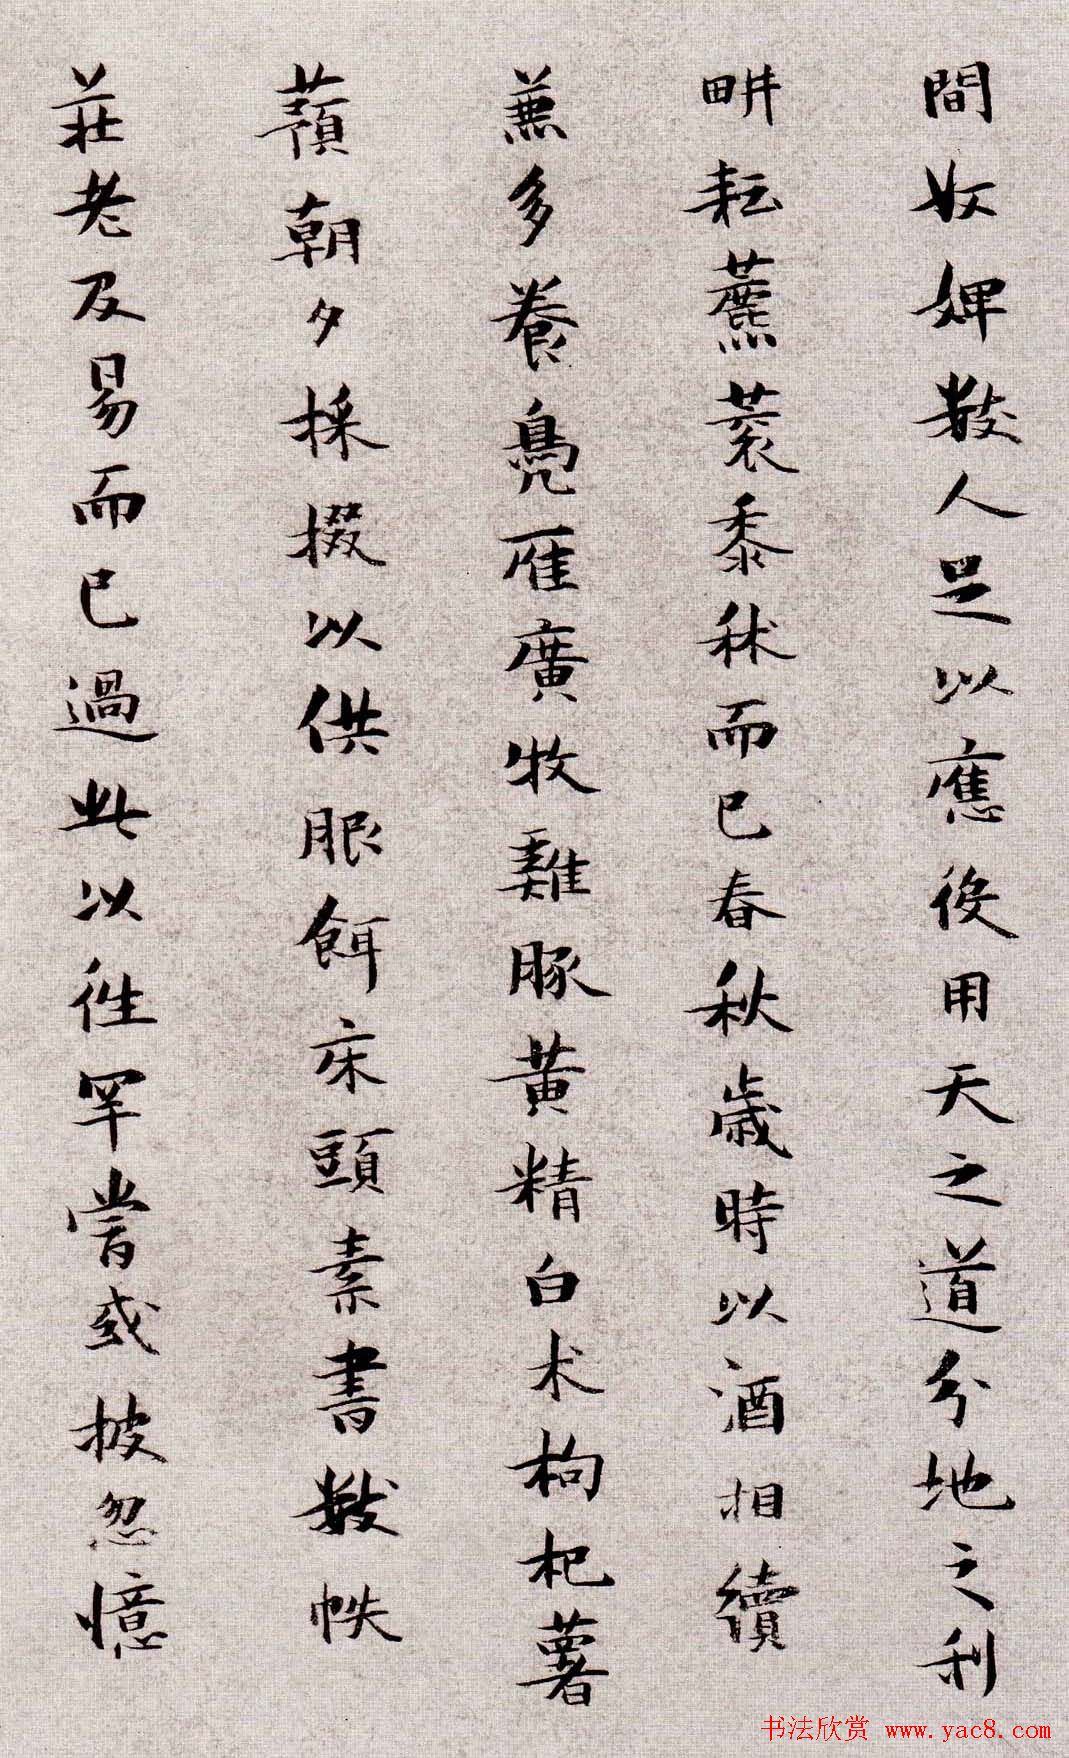 間奴婢數人足以應役用天之道分地之利
畊耘藨蔉黍秫而已春秋歲時以酒相續
兼多養鳧雁廣牧雞豚黃精白朮枸杞薯
蕷朝夕採掇以供服餌床頭素書數帙
莊老及易而已過此以往罕嘗或披忽憶
书法欣赏 www.yac8.com